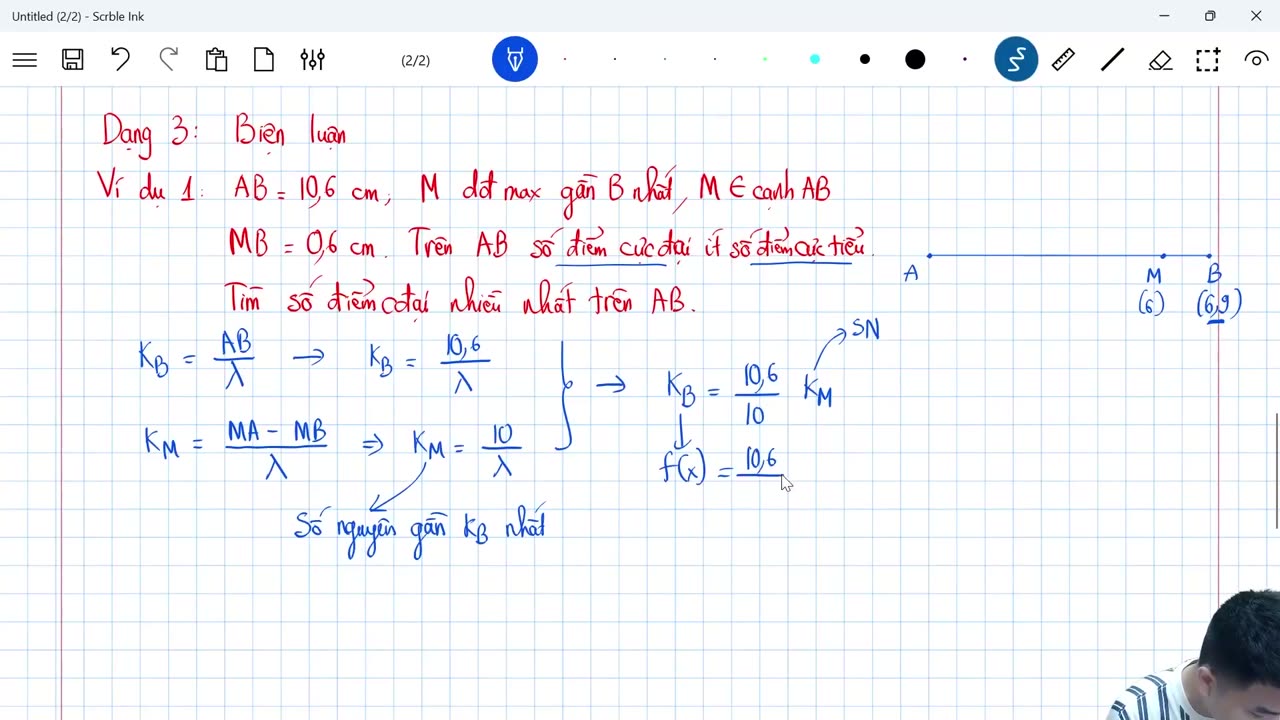 Untitled (2/2) - Scrble Ink
(2/2)
Dạng 3: Biện luận
Ví dụ 1: AB = 10,6 cm, M dđ max gần B nhất, M ∈ cạnh AB
MB = 0,6 cm. Trên AB số điểm cực đại ít số điểm cực tiểu.
Tìm số điểm cđại nhiều nhất trên AB.
A M B
(6) (6,9)
K_B = AB/λ → K_B = 10,6/λ
K_M = (MA - MB)/λ ⇒ K_M = 10/λ
Số nguyên gần K_B nhất
→ K_B = 10,6/10 K_M
SN
f(x) = 10,6